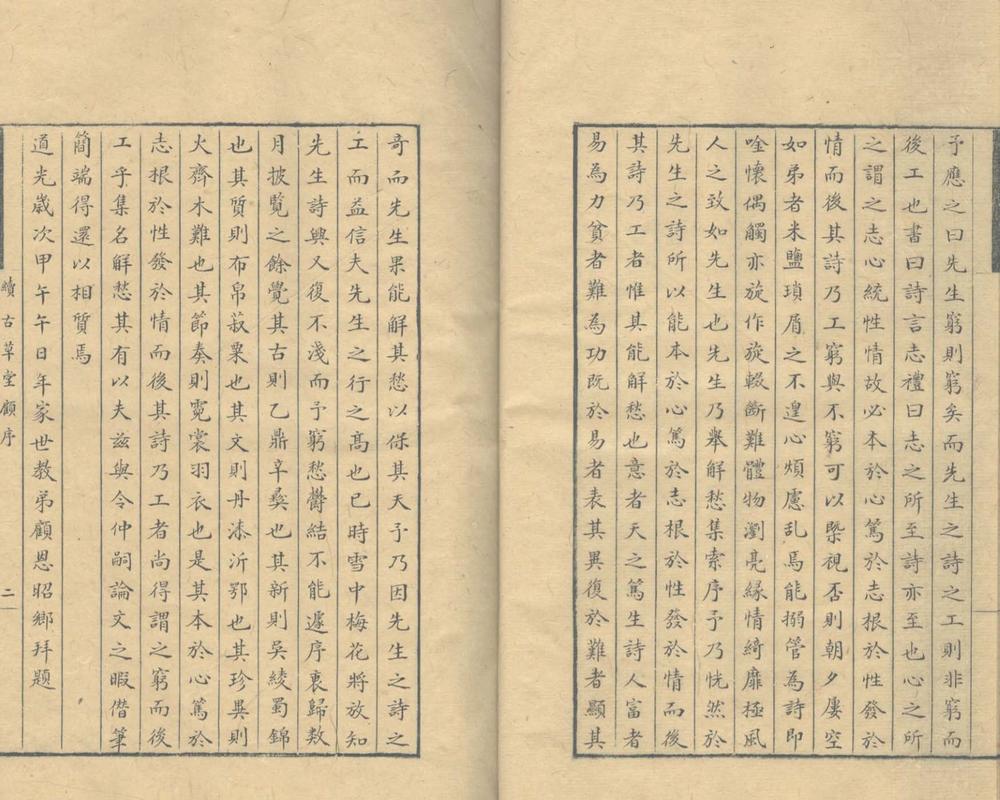 予應之曰先生窮則窮矣而先生之詩之工則非窮而
後工也書曰詩言志禮曰志之所至詩亦至也心之所
之謂之志心統性情故必本於心篤於志根於性發於
情而後其詩乃工窮與不窮可以槩視否則朝夕屢空
如弟者米鹽瑣屑之不遑心煩慮乱焉能搦管為詩即
唫懷偶觸亦旋作旋輟斷難體物瀏亮緣情綺靡極風
人之致如先生也先生乃舉解愁集索序予乃恍然於
先生之詩所以能本於心篤於志根於性發於情而後
其詩乃工者惟其能解愁也意者天之篤生詩人富者
易為力貧者難為功既於易者表其異復於難者顯其
奇而先生果能解其愁以保其天予乃因先生之詩之
工而益信夫先生之行之高也已時雪中梅花將放知
先生詩興又復不淺而予窮愁鬱結不能遽序裹歸数
月披覧之餘覺其古則乙鼎辛彝也其新則吳綾蜀錦
也其質則布帛菽粟也其文則丹漆沂鄂也其珍異則
火齊木難也其節奏則霓裳羽衣也是其本於心篤於
志根於性發於情而後其詩乃工者尚得謂之窮而後
工乎集名解愁其有以夫兹與令仲嗣論文之暇偕筆
簡端得還以相質焉
道光歲次甲午午日年家世教弟顧恩昭鄉拜題
續古草堂顧序
二